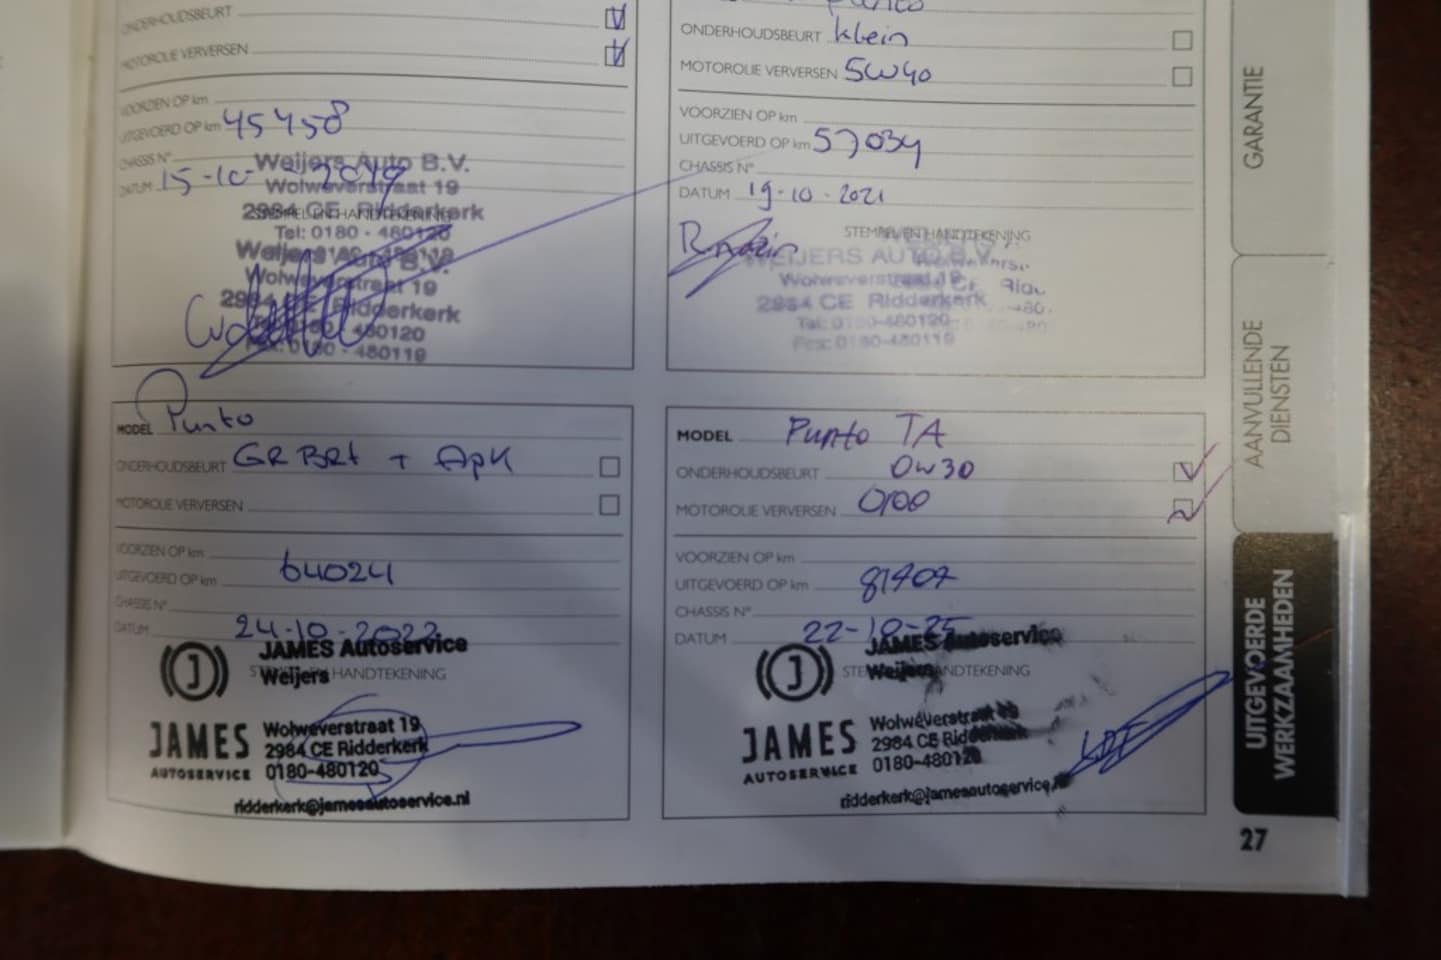 ONDERHOUDSBEURT
MOTOROLIE VERVERSEN
VOORZIEN OP km
UITGEVOERD OP km 45458
CHASSIS N°
DATUM 15-10-2019
STEMPEL EN HANDTEKENING
Weijers Auto B.V.
Wolweverstraat 19
2984 CE Ridderkerk
Tel: 0180 - 480120
Weijers Auto B.V.
Wolweverstraat 19
2984 CE Ridderkerk
Tel: 0180 - 480120
Fax: 0180 - 480119
Punto
ONDERHOUDSBEURT klein
MOTOROLIE VERVERSEN 5W40
VOORZIEN OP km
UITGEVOERD OP km 57034
CHASSIS N°
DATUM 19-10-2021
STEMPEL EN HANDTEKENING
WEIJERS AUTO B.V.
Wolweverstraat 19
2984 CE Ridderkerk
Tel: 0180-480120
Fax: 0180-480119
MODEL Punto
ONDERHOUDSBEURT GR BRT + APK
MOTOROLIE VERVERSEN
VOORZIEN OP km
UITGEVOERD OP km 64024
CHASSIS N°
DATUM 24-10-2022
JAMES Autoservice
Weijers
STEMPEL EN HANDTEKENING
JAMES
AUTOSERVICE
Wolweverstraat 19
2984 CE Ridderkerk
0180-480120
ridderkerk@jamesautoservice.nl
MODEL Punto TA
ONDERHOUDSBEURT 0W30
MOTOROLIE VERVERSEN
VOORZIEN OP km
UITGEVOERD OP km 81907
CHASSIS N°
DATUM 22-10-25
JAMES Autoservice
Weijers
STEMPEL EN HANDTEKENING
JAMES
AUTOSERVICE
Wolweverstraat 19
2984 CE Ridderkerk
0180-480120
ridderkerk@jamesautoservice
GARANTIE
AANVULLENDE
DIENSTEN
UITGEVOERDE
WERKZAAMHEDEN
27